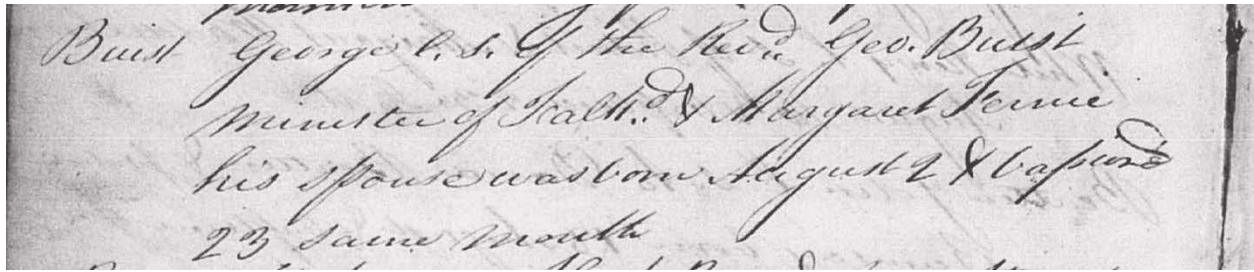 Buist George l. s. of the Revd. Geo. Buist
Minister of Falkd. & Margaret Fernie
his spouse was born August 2 & baptized
23 same month